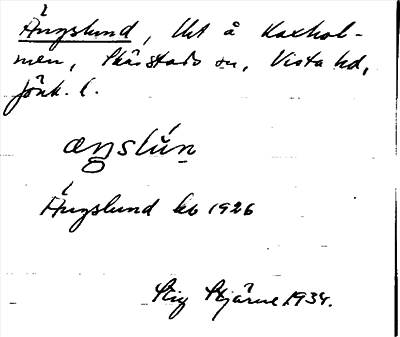 Ängslund, lht å Kaxhol-
men, Skärstads sn, Vista hd,
Jönk. l.
æŋslùn
Ängslund kb 1926
Stig Stjärne 1934.